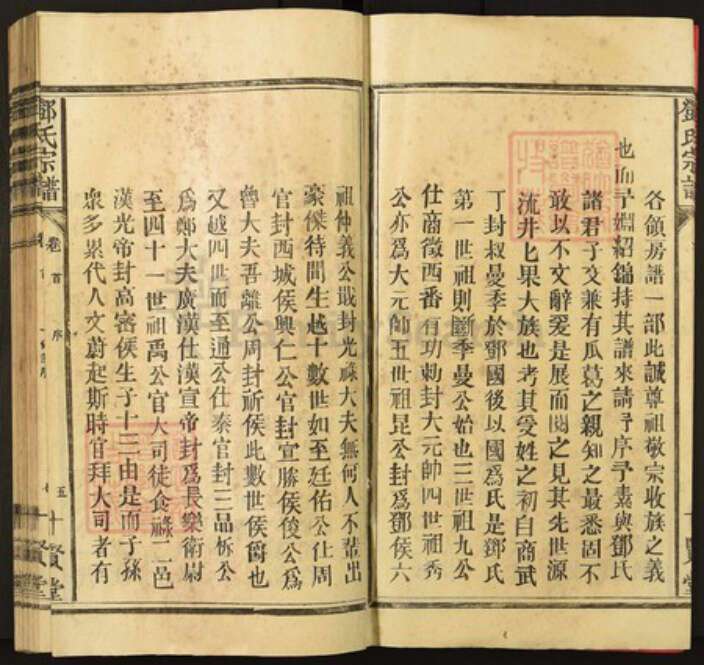 各領房譜一部此誠尊祖敬宗收族之義
也而子嫻紹錦持其譜來請予序予素與鄧氏
諸君子交兼有瓜葛之親知之最悉固不
敢以不文辭爰是展而閱之見其先世源
流井井果大族也考其受姓之初自商武
丁封叔曼季於鄧國後以國爲氏是鄧氏
第一世祖則斷季曼公始也三世祖九公
仕商徵西番有功勅封大元帥四世祖秀
公亦爲大元帥五世祖昆公封爲鄧侯六
祖仲義公戢封光祿大夫無何人不輩出
豪傑待間生越十數世如至廷佑公仕周
官封西城侯興仁公官封宣勝侯俊公爲
魯大夫吾離公周封祈侯此數世侯爵也
又越四世而至通公仕泰官封三品析公
爲鄭大夫廣漢仕漢宣帝封爲長樂衛尉
至四十一世祖禹公官大司徒食祿二邑
漢光帝封高密侯生子十三由是而子孫
衆多累代人文蔚起斯時官拜大司者有
鄧氏宗譜
卷首
序
五
十賢堂
鄧氏宗譜
賢堂